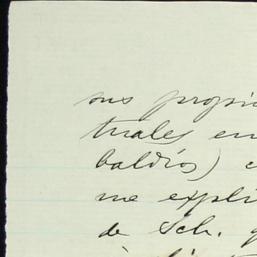 sus propi
turales en
baldíos) c
me expli
de Sch. q